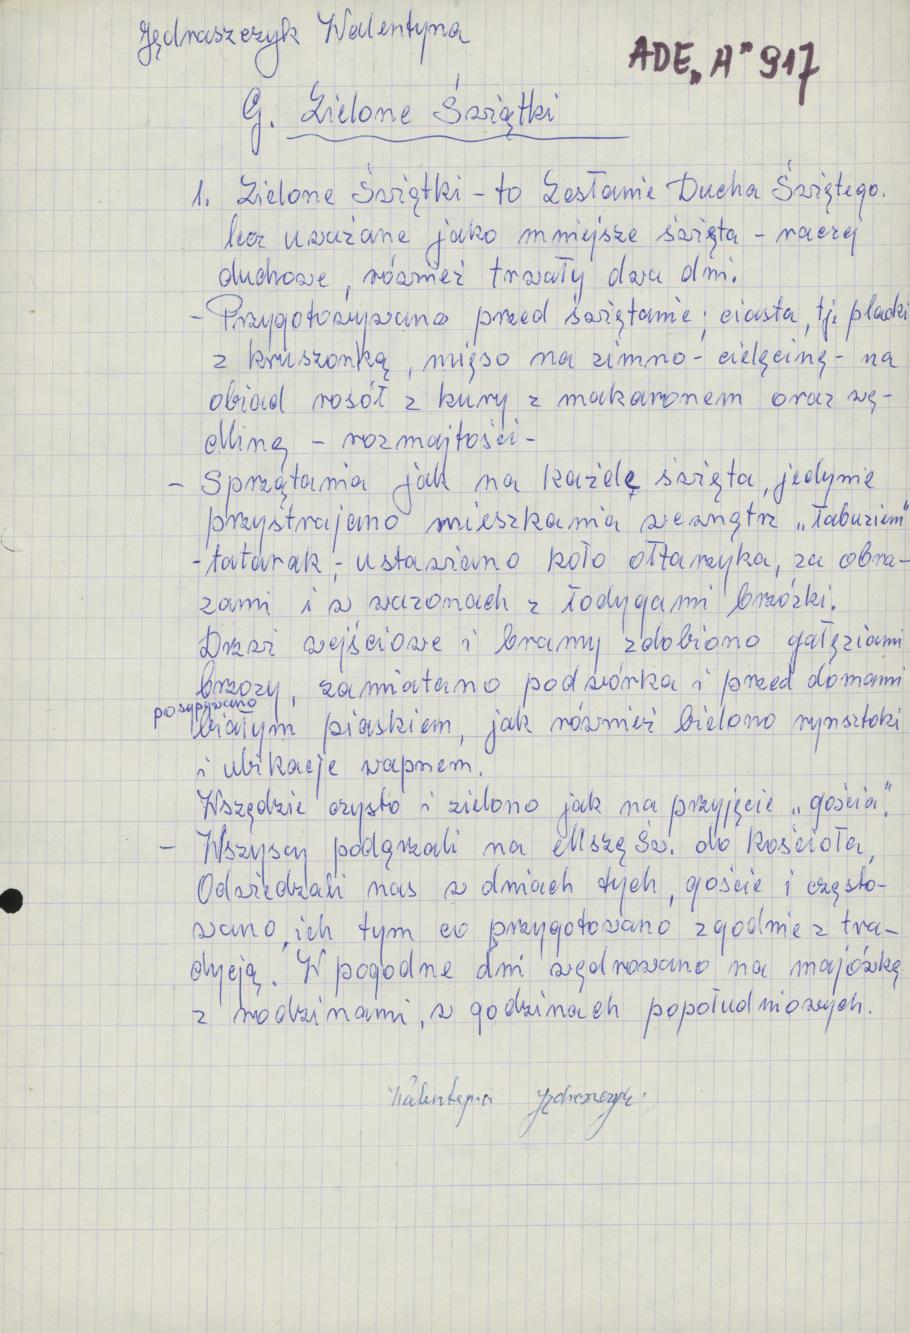 Jędraszczyk Walentyna
ADE „A” 917
G. Zielone Świątki
1. Zielone Świątki – to Zesłanie Ducha Świętego.
lecz uważane jako mniejsze święta – raczej
duchowe, również trwały dwa dni.
– Przygotowywano przed świętami; ciasta, tj. placki
z kruszonką, mięso na zimno – cielęcinę – na
obiad rosół z kury z makaronem oraz wę-
dlinę – rozmajtości –
– Sprzątania jak na każdę święta, jedynie
przystrajano mieszkania wewnątrz „tabuziem”
– tatarak, – ustawiano koło ołtarzyka, za obra-
zami i w wazonach z łodygami brzózki.
Drzwi wejściowe i bramy zdobiono gałęziami
brzozy, zamiatano podwórka i przed domami
posypywano
białym piaskiem, jak również bielono rynsztoki
i ubikacje wapnem.
Wszędzie czysto i zielono jak na przyjęcie „gościa”.
– Wszyscy podążali na Mszę Św. do kościoła,
Odwiedzali nas w dniach tych, goście i często-
wano, ich tym co przygotowano zgodnie z tra-
dycją. W pogodne dni wędrowano na majówkę
z rodzinami, w godzinach popołudniowych.
Walentyna Jędraszczyk